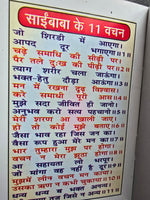 साईंबाबा के 11 वचन
जो शिरडी में आएगा।
आपद दूर भगाएगा॥1॥
चढ़े समाधि की सीढ़ी पर।
पैर तले दुःख की पीढ़ी पर॥2॥
त्याग शरीर चला जाऊंगा।
भक्त-हेतु दौड़ा आऊंगा॥3॥
मन में रखना दृढ़ विश्वास।
करे समाधि पूरी आस॥4॥
मुझे सदा जीवित ही जानो।
अनुभव करो सत्य पहचानो॥5॥
मेरी शरण आ खाली जाए।
हो तो कोई मुझे बताए॥6॥
जैसा भाव रहा जिस जन का।
वैसा रूप हुआ मेरे मन का॥7॥
भार तुम्हारा मुझ पर होगा।
वचन न मेरा झूठा होगा॥8॥
आ सहायता लो भरपूर।
जो मांगा वह नहीं है दूर॥9॥
मुझमें लीन वचन मन काया।
उसका ऋण न कभी चुकाया॥10॥
धन्य धन्य व भक्त अनन्य।